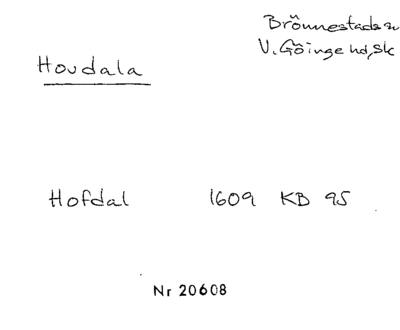 Brönnestads sn
V. Göinge hd, Sk
Hovdala
Hofdal 1609 KB 95
Nr 20608